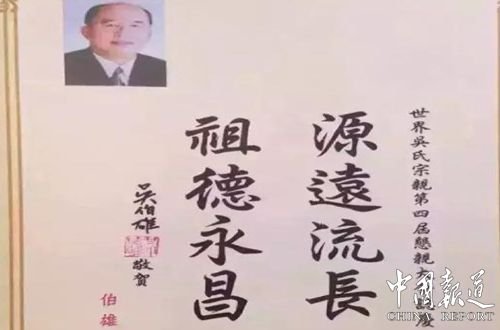 世界吳氏宗親第四屆懇親
源遠流長
祖德永昌
吳伯雄
敬賀
伯雄
中国报道
CHINA REPORT